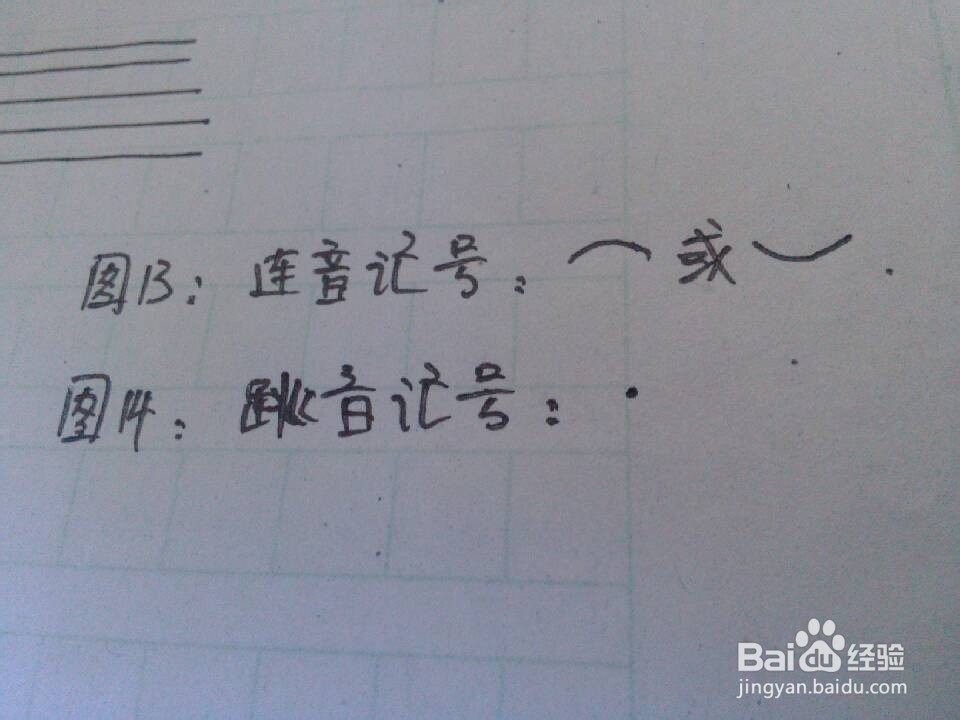 图13：连音记号：⌒ 或 ‿ .
图14：跳音记号：·
Bai du 经验
jingyan.baidu.com